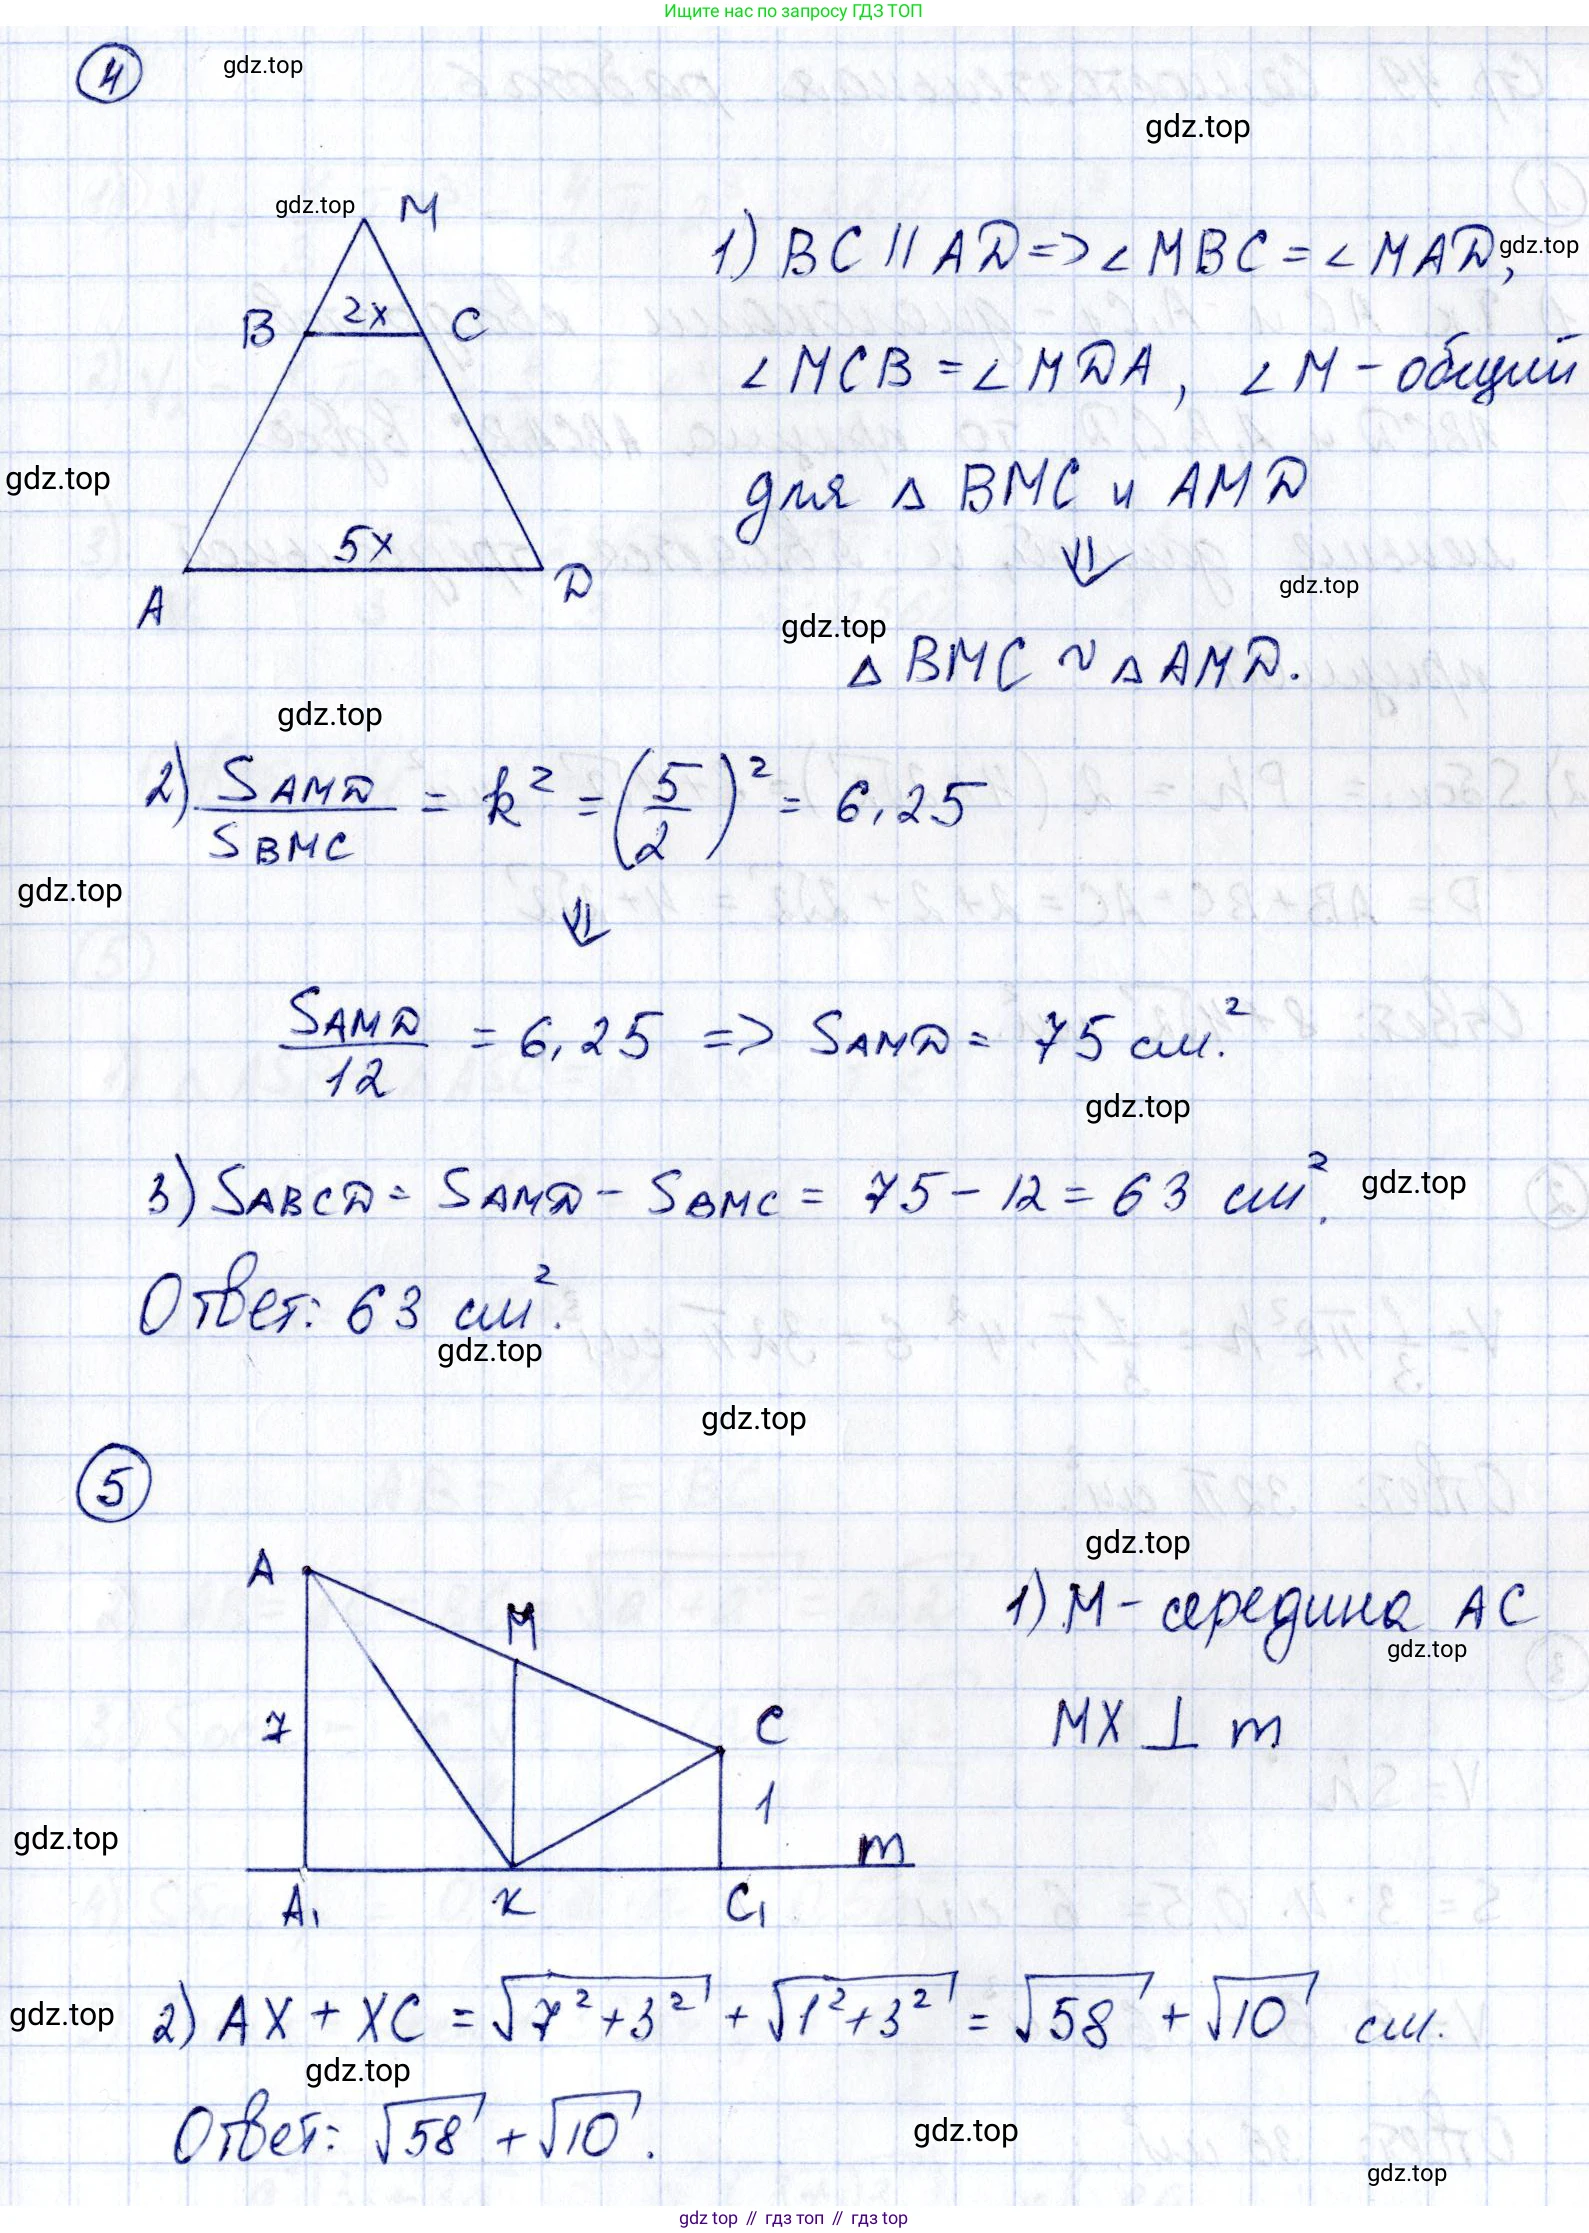 Ищите нас по запросу ГДЗ ТОП
4
gdz.top
gdz.top
gdz.top M
1) BC || AD => ∠MBC = ∠MAD,
gdz.top
B 2x C
∠MCB = ∠MDA, ∠M - общий
gdz.top
для △ BMC и AMD
5x
⇓
A D
gdz.top
gdz.top
△ BMC ~ △ AMD.
gdz.top
2) S AMD / S BMC = k² = (5/2)² = 6,25
gdz.top
⇓
S AMD / 12 = 6,25 => S AMD = 75 см.²
gdz.top
3) S ABCD = S AMD - S BMC = 75 - 12 = 63 см².
gdz.top
Ответ: 63 см².
gdz.top
gdz.top
5
gdz.top
A
1) M - середина AC
M
gdz.top
7 C
MX ⊥ m
1
gdz.top
m
A₁ X C₁
gdz.top
2) AX + XC = √(7² + 3²) + √(1² + 3²) = √58 + √10 см.
gdz.top
Ответ: √58 + √10.
gdz.top
gdz.top
gdz top // гдз топ // gdz top